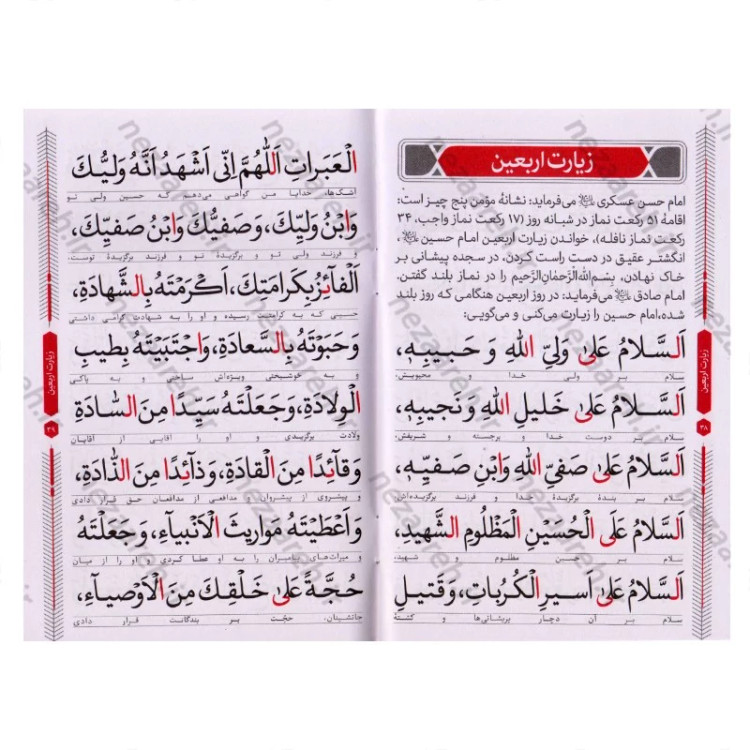 زیارت اربعین
امام حسن عسکری می‌فرماید: نشانهٔ مؤمن پنج چیز است:
اقامهٔ ۵۱ رکعت نماز در شبانه روز (۱۷ رکعت نماز واجب، ۳۴
رکعت نماز نافله)، خواندن زیارت اربعین امام حسین،
انگشتر عقیق در دست راست کردن، در سجده پیشانی بر
خاک نهادن، بِسْمِ اللهِ الرَّحْمٰنِ الرَّحیم را در نماز بلند گفتن.
امام صادق می‌فرماید: در روز اربعین هنگامی که روز بلند
شده، امام حسین را زیارت می‌کنی و می‌گویی:
اَلسَّلامُ عَلیٰ وَلِیِّ اللهِ وَ حَبیبِهِ،
سلام بر ولی خدا و محبوبش،
اَلسَّلامُ عَلیٰ خَلیلِ اللهِ وَ نَجیبِهِ،
سلام بر دوست خدا و برجسته و شریفش،
اَلسَّلامُ عَلیٰ صَفِیِّ اللهِ وَابْنِ صَفِیِّهِ،
سلام بر بندهٔ برگزیدهٔ خدا و فرزند برگزیده‌اش،
اَلسَّلامُ عَلَی الْحُسَیْنِ الْمَظْلُومِ الشَّهیدِ،
سلام بر حسین مظلوم و شهید،
اَلسَّلامُ عَلیٰ اَسیرِ الْکُرُباتِ، وَ قَتیلِ
سلام بر آن دچار پریشانی‌ها و کشتهٔ
زیارت اربعین
۳۸
الْعَبَراتِ اَللّٰهُمَّ اِنّی اَشْهَدُ اَنَّهُ وَلِیُّكَ
اشک‌ها، خدایا من گواهی می‌دهم که حسین ولی تو
وَابْنُ وَلِیِّكَ، وَصَفِیُّكَ وَابْنُ صَفِیِّكَ،
و فرزند ولی تو و برگزیدهٔ تو و فرزند برگزیدهٔ توست،
اَلْفآئِزُ بِکَرامَتِكَ، اَکْرَمْتَهُ بِالشَّهادَةِ،
حسینی که به کرامتت رسیده و او را به شهادت گرامی داشتی
وَحَبَوْتَهُ بِالسَّعادَةِ، وَاجْتَبَیْتَهُ بِطیبِ
و به خوشبختی ویژه‌اش ساختی و به پاکی
الْوِلادَةِ، وَجَعَلْتَهُ سَیِّدًا مِنَ السّادَةِ
ولادت برگزیدی و او را آقایی از آقایان
وَقآئِدًا مِنَ الْقادَةِ، وَذآئِدًا مِنَ الذّادَةِ،
و پیشروی از پیشروان و مدافعی از مدافعان حق قرار دادی
وَاَعْطَیْتَهُ مَواریثَ الْاَنْبِیآءِ، وَجَعَلْتَهُ
و میراث‌های پیامبران را به او عطا کردی و او را از میان
حُجَّةً عَلیٰ خَلْقِكَ مِنَ الْاَوْصِیآءِ،
جانشینان، حجّت بر بندگانت قرار دادی
زیارت اربعین
۳۹
nezareh.ir